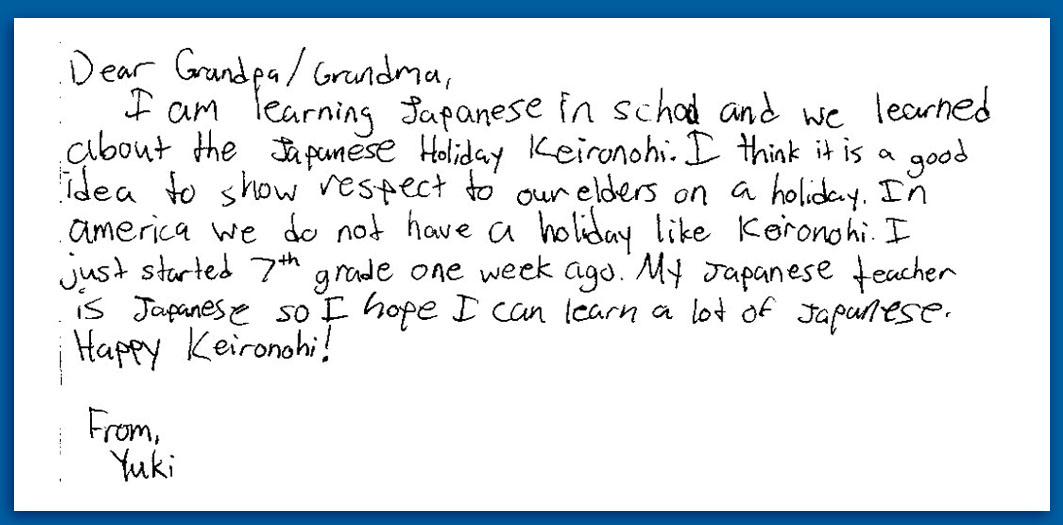 Dear Grandpa/Grandma,
I am learning Japanese in school and we learned
about the Japanese Holiday Keironohi. I think it is a good
idea to show respect to our elders on a holiday. In
america we do not have a holiday like Keironohi. I
just started 7th grade one week ago. My Japanese teacher
is Japanese so I hope I can learn a lot of Japanese.
Happy Keironohi!
From,
Yuki